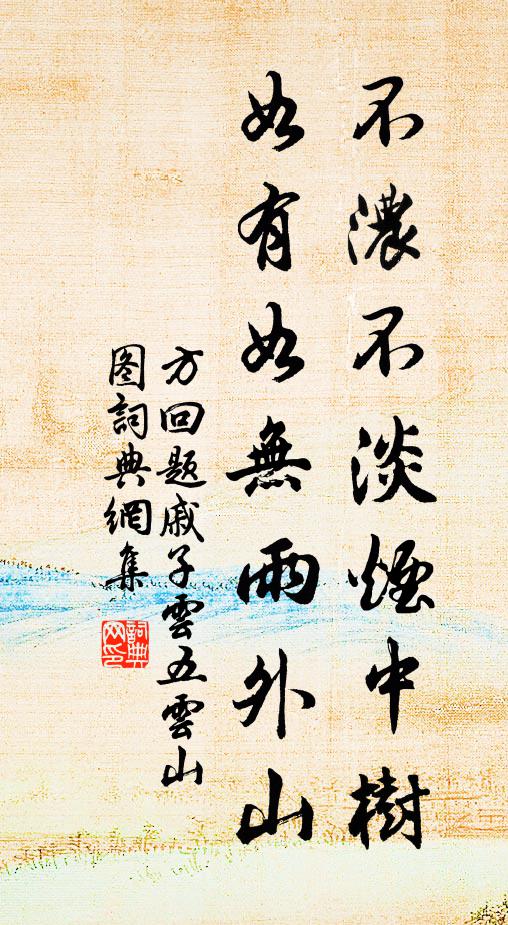 不濃不淡煙中樹
如有如無雨外山
方回題戚子雲五雲山
图詞典網集
詞典
网印